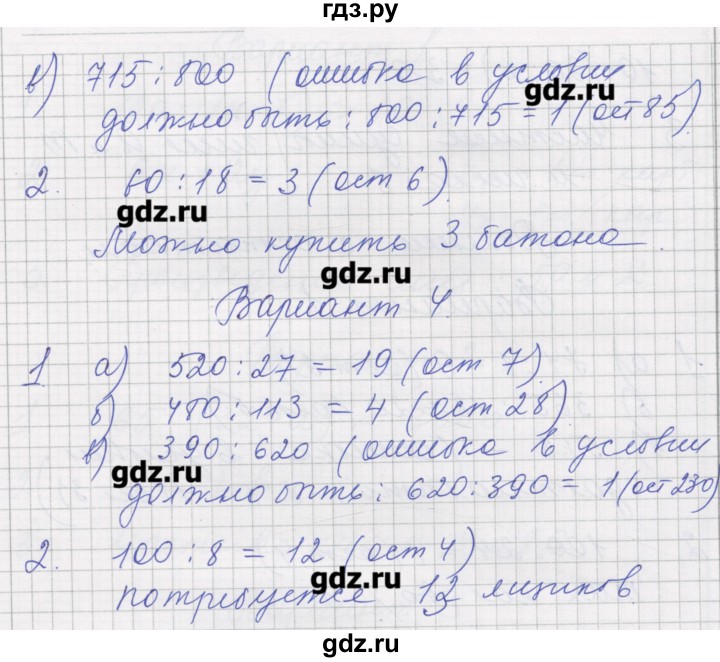 гдз.ру
в) 715 : 800 (ошибка в условии
gdz.ru
должно быть: 800 : 715 = 1 (ост 85)
2. 60 : 18 = 3 (ост 6)
gdz.ru
Можно купить 3 батона.
gdz.ru
Вариант 4
1 а) 520 : 27 = 19 (ост 7)
б) 480 : 113 = 4 (ост 28)
в) 390 : 620 (ошибка в условии
gdz.ru
должно быть: 620 : 390 = 1 (ост 230)
2. 100 : 8 = 12 (ост 4)
gdz.ru
потребуется 13 ящиков
gdz.ru